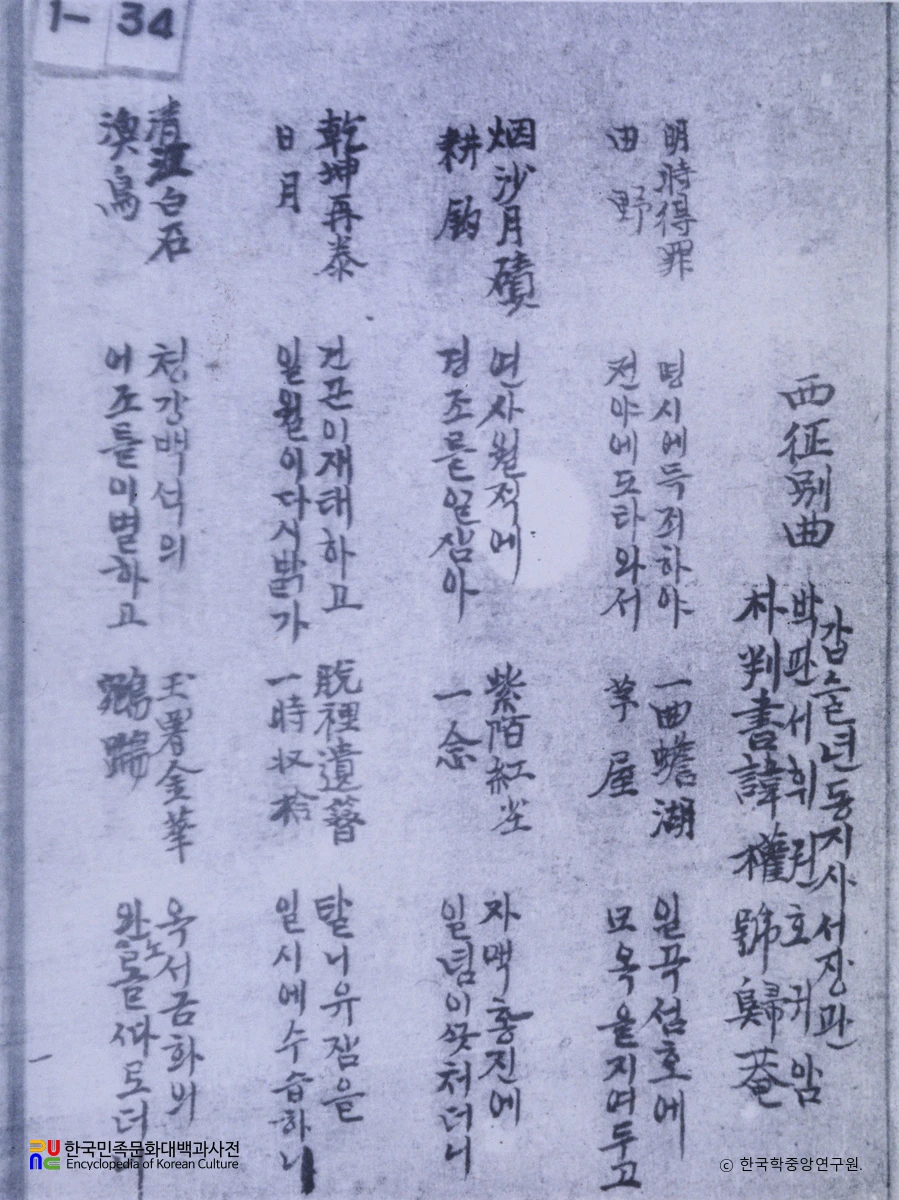 1-34
西征別曲
갑술년동지사서장관
박판서휘권호귀암
朴判書諱權號歸菴
明時得罪
田野
명시에득죄하야
전야에도라와서
一曲蟾湖
茅屋
일곡섬호에
모옥을지여두고
烟沙月磧
耕釣
연사월적에
경조를일삼아
紫陌紅尘
一念
자맥홍진에
일념이긋처더니
乾坤再泰
日月
건곤이재태하고
일월이다시밝가
脫裡遺簪
一時収拾
탈니유잠을
일시에수습하니
清江白石
漁鳥
청강백석의
어조를이별하고
玉署金華
옥서금화의
완노를ᄯᅡ로더니
한국민족문화대백과사전
Encyclopedia of Korean Culture
© 한국학중앙연구원.